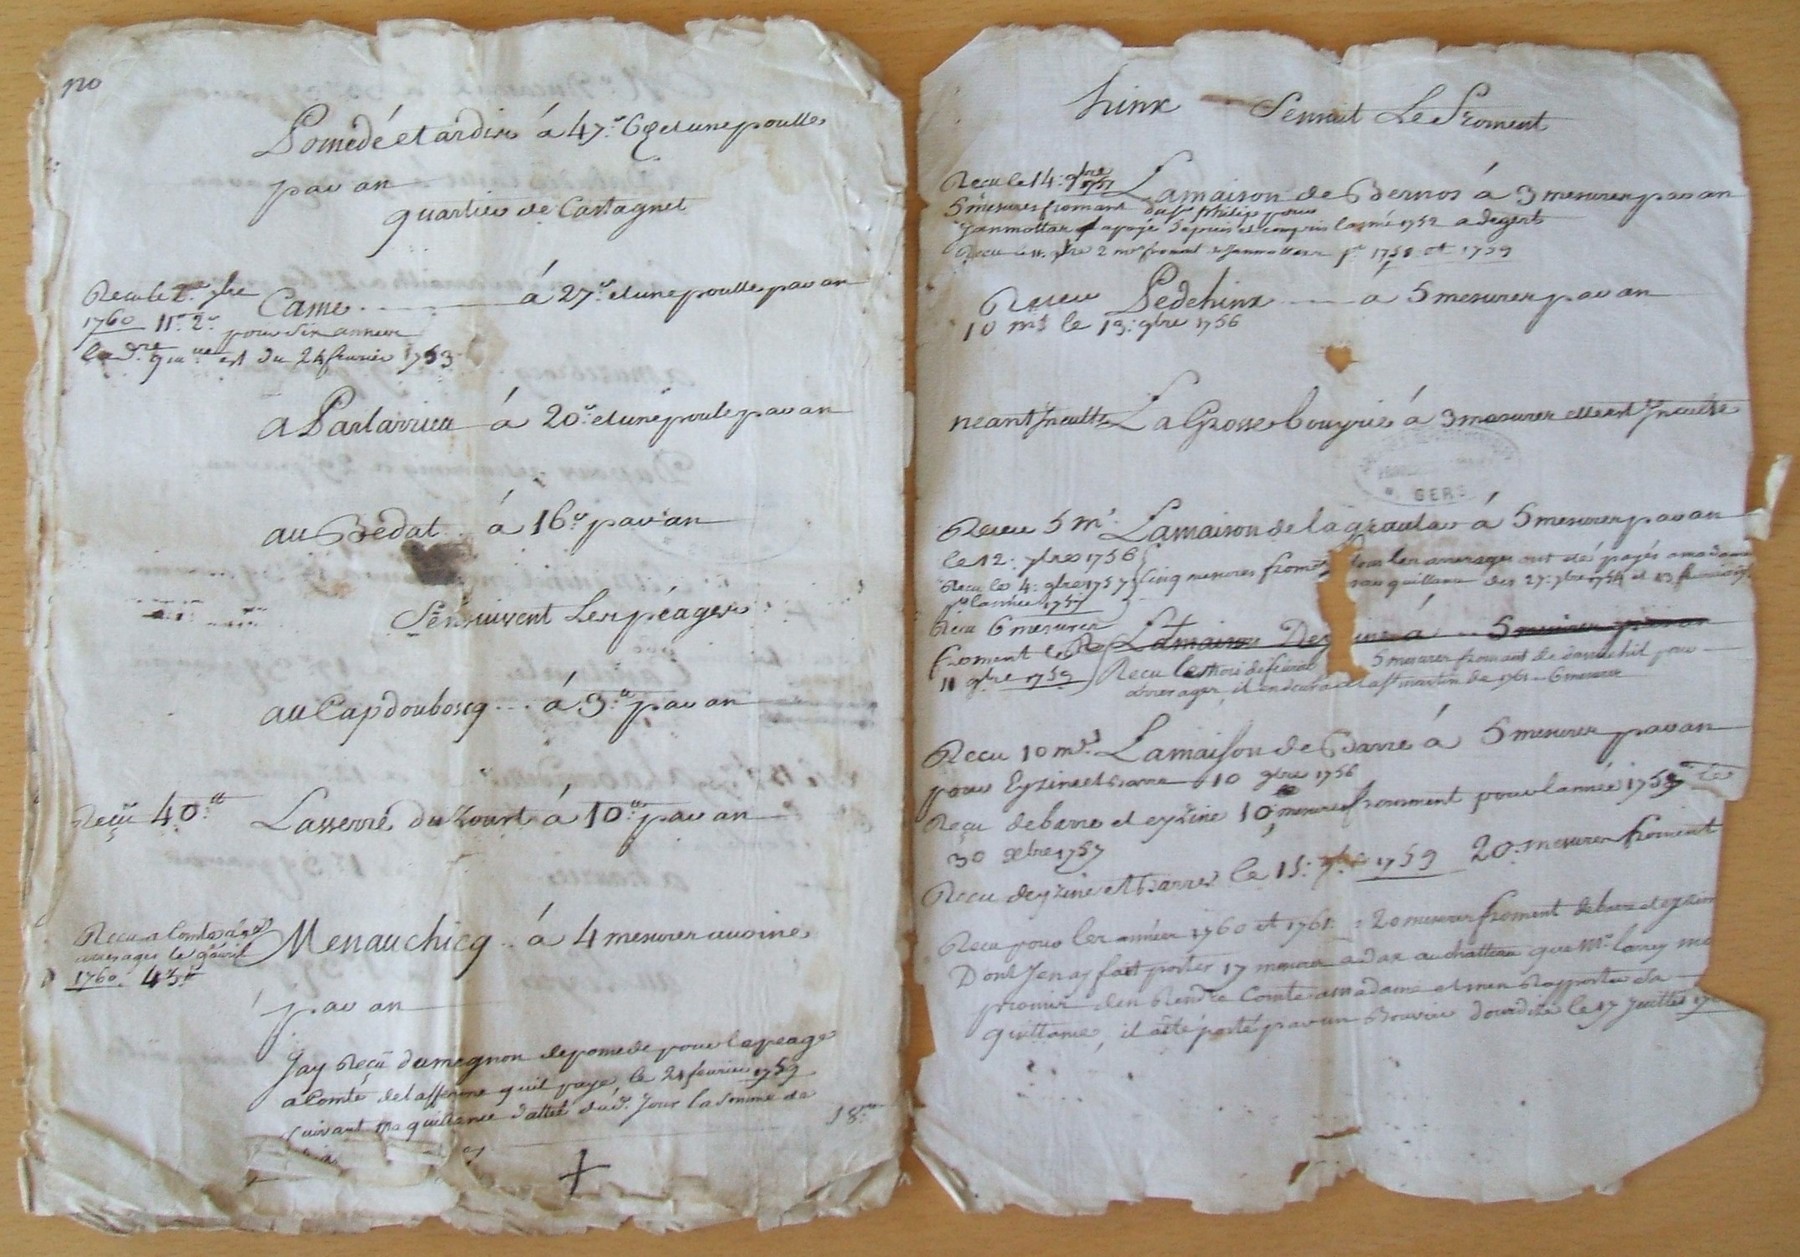 no
Pomedé et ardin á 47.s 6 et une poulle
par an
quartier de Castagnet
Recu le 9bre
1760 11.# 2.s pour six années
Came á 27.s et une poulle par an
la d.re q.ue est du 24 fevrier 1753
a Parlarrieu á 20.s et une poule par an
au Bedat á 16.s par an
S'ensuivent Les péages
au Capdouboscq á 3.# par an
Reçu 40.#
Lasserre du Lourt á 10.# par an
Recu a Comte des
arrerages le avril
1760. 43.#
Menauchicq á 4 mesures avoine
par an
Jay Reçu du mégnon de pomede pour le péage
a Comte de la ferme quil paye, le 21 fevrier 1759
suivant ma quittance dattée dud. Jour la somme de
18.#
hinx Sensuit Le Froment
Recu le 14: 9bre 1757
Lamaison de Bernos á 3 mesures par an
5 mesures froment du Sr Philip pour
Janmottas a payé depuis et compris l'anné 1752 a degert
Recu le 11. 9bre 2 m.s froment de Janmottas p.r 1758 et 1759
Receu Pedehinx a 5 mesures par an
10 m.s le 13: 9bre 1756
neant Inculte La Grosse bouyrie á 3 mesures elle est Inculte
GERS
Receu 5 m.s Lamaison de lagraulas á 5 mesures par an
le 12: 9bre 1756
tous les arrerages ont été payés a madame
Recu le 4: 9bre 1757 cinq mesures froment
quittance des 27: 9bre 1754 et 13 fevrier
pr l'année 1757
Recu 6 mesures
Lamaison De á 5 mesures par an
froment le
11 9bre 1759
Recu le mois de fevrier 5 mesures froment de pour
arrerages, il en doit a la St martin de 1761 6 mesures
Recu 10 m.s Lamaison de Barre á 5 mesures par an
pour Eyzine et barre 10 9bre 1756
Reçu de barre et eyzine 10 mesures froment pour l'année 175 le
30 xbre 1757
Recu deyzine et Barre le 15: 9bre 1759 20 mesures froment
Recu pour les années 1760 et 1761 20 mesures froment de barre et eyzine
Dont Jen ay fait porter 17 mesures a dax au chatteau que Mr
promis den Rendre Comte a madame et men Raporter sa
quittance, il a été porté par un Bouvier le 17 Juillet